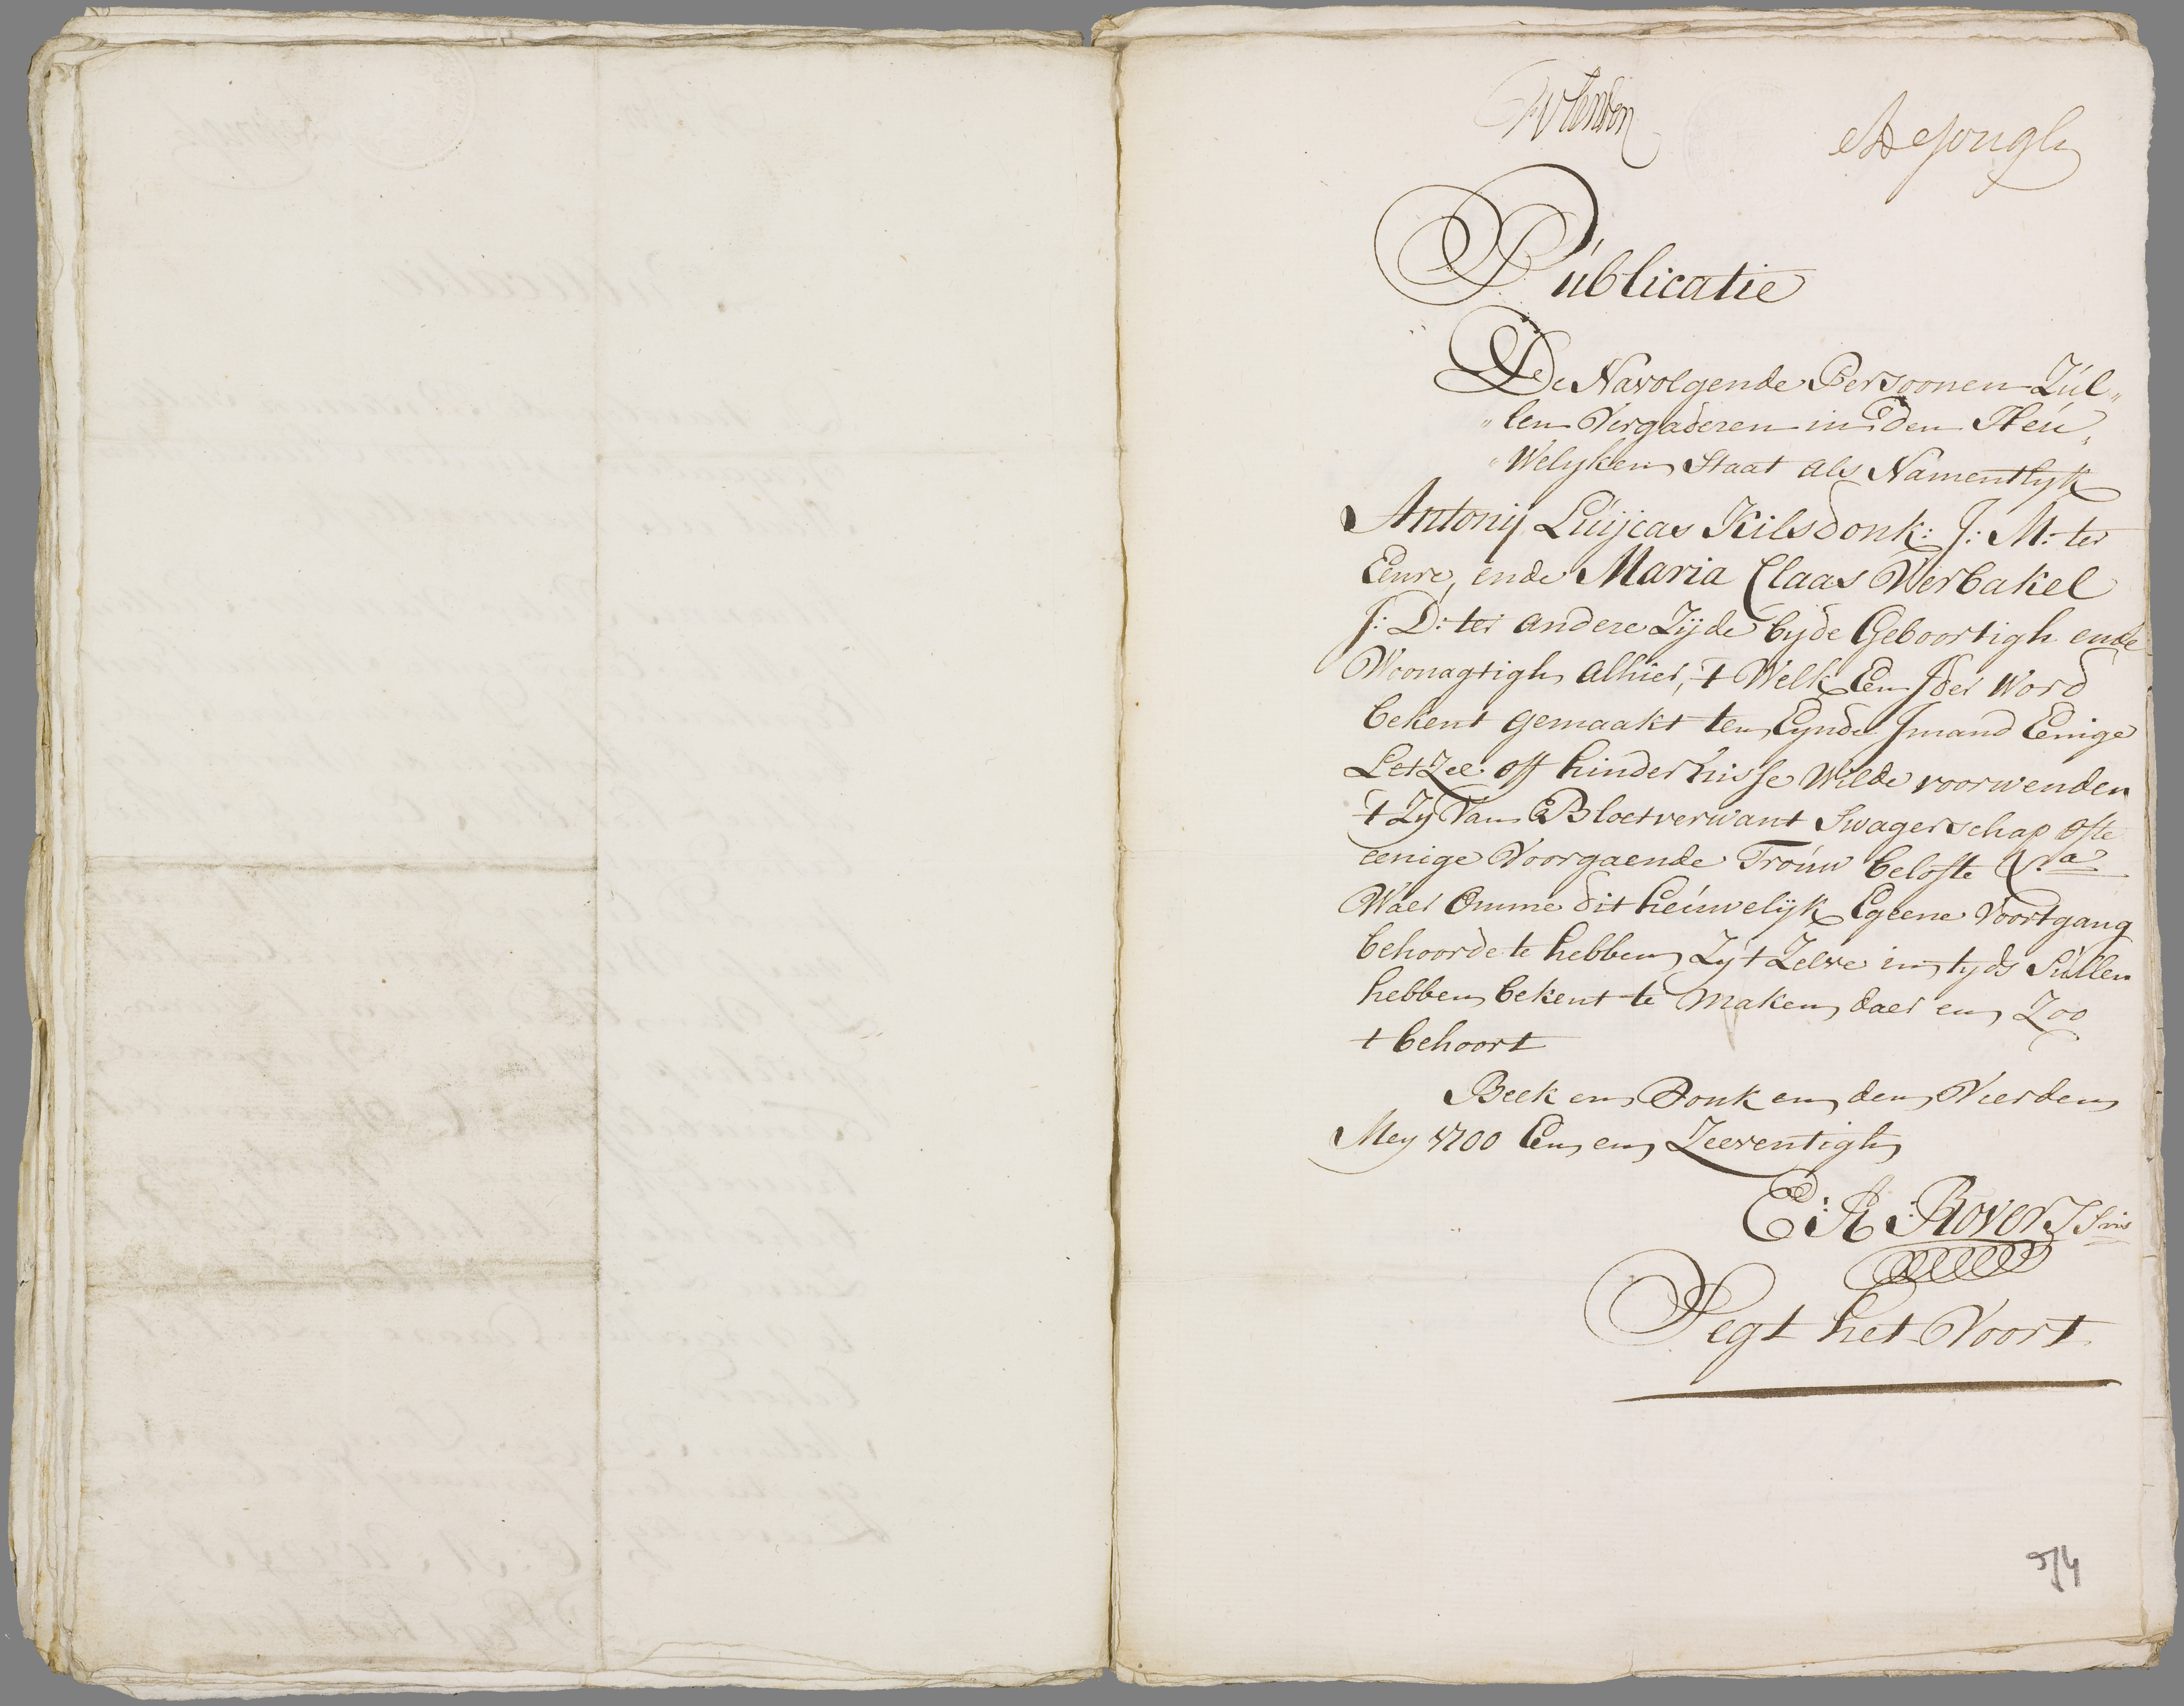 Publicatie
De Navolgende Persoonen Zúl„
„len Vergaderen in Den Heú„
„Welyken Staat als Namentlyk
Antonij Lúijcas Kilsdonk: J: M: ter
Eenre, ende Maria Claas Verbakel
J: D: ter andere Zijde byde Geboortigh ende
Woonagtigh alhier, t Welk Een Jder Word
bekent gemaakt ten Eynde Jmand Eenige
LetZel off hindernisse Wilde voorwenden
t Zy Van Bloetverwant Swagerschap ofte
eenige Voorgaende Troúw belofte &ra
Waer Omme dit heúwelijk Egeene Voortgang
behoorde te hebben, Zy t Zelve in tyds Súllen
hebben bekent te Maken, daer en Zoo
t behoort
Beek en Donk en, den Vierden
Mey 1700 Een en Zeeventigh
E: R: Rovers Sris
Segt het Voort
54